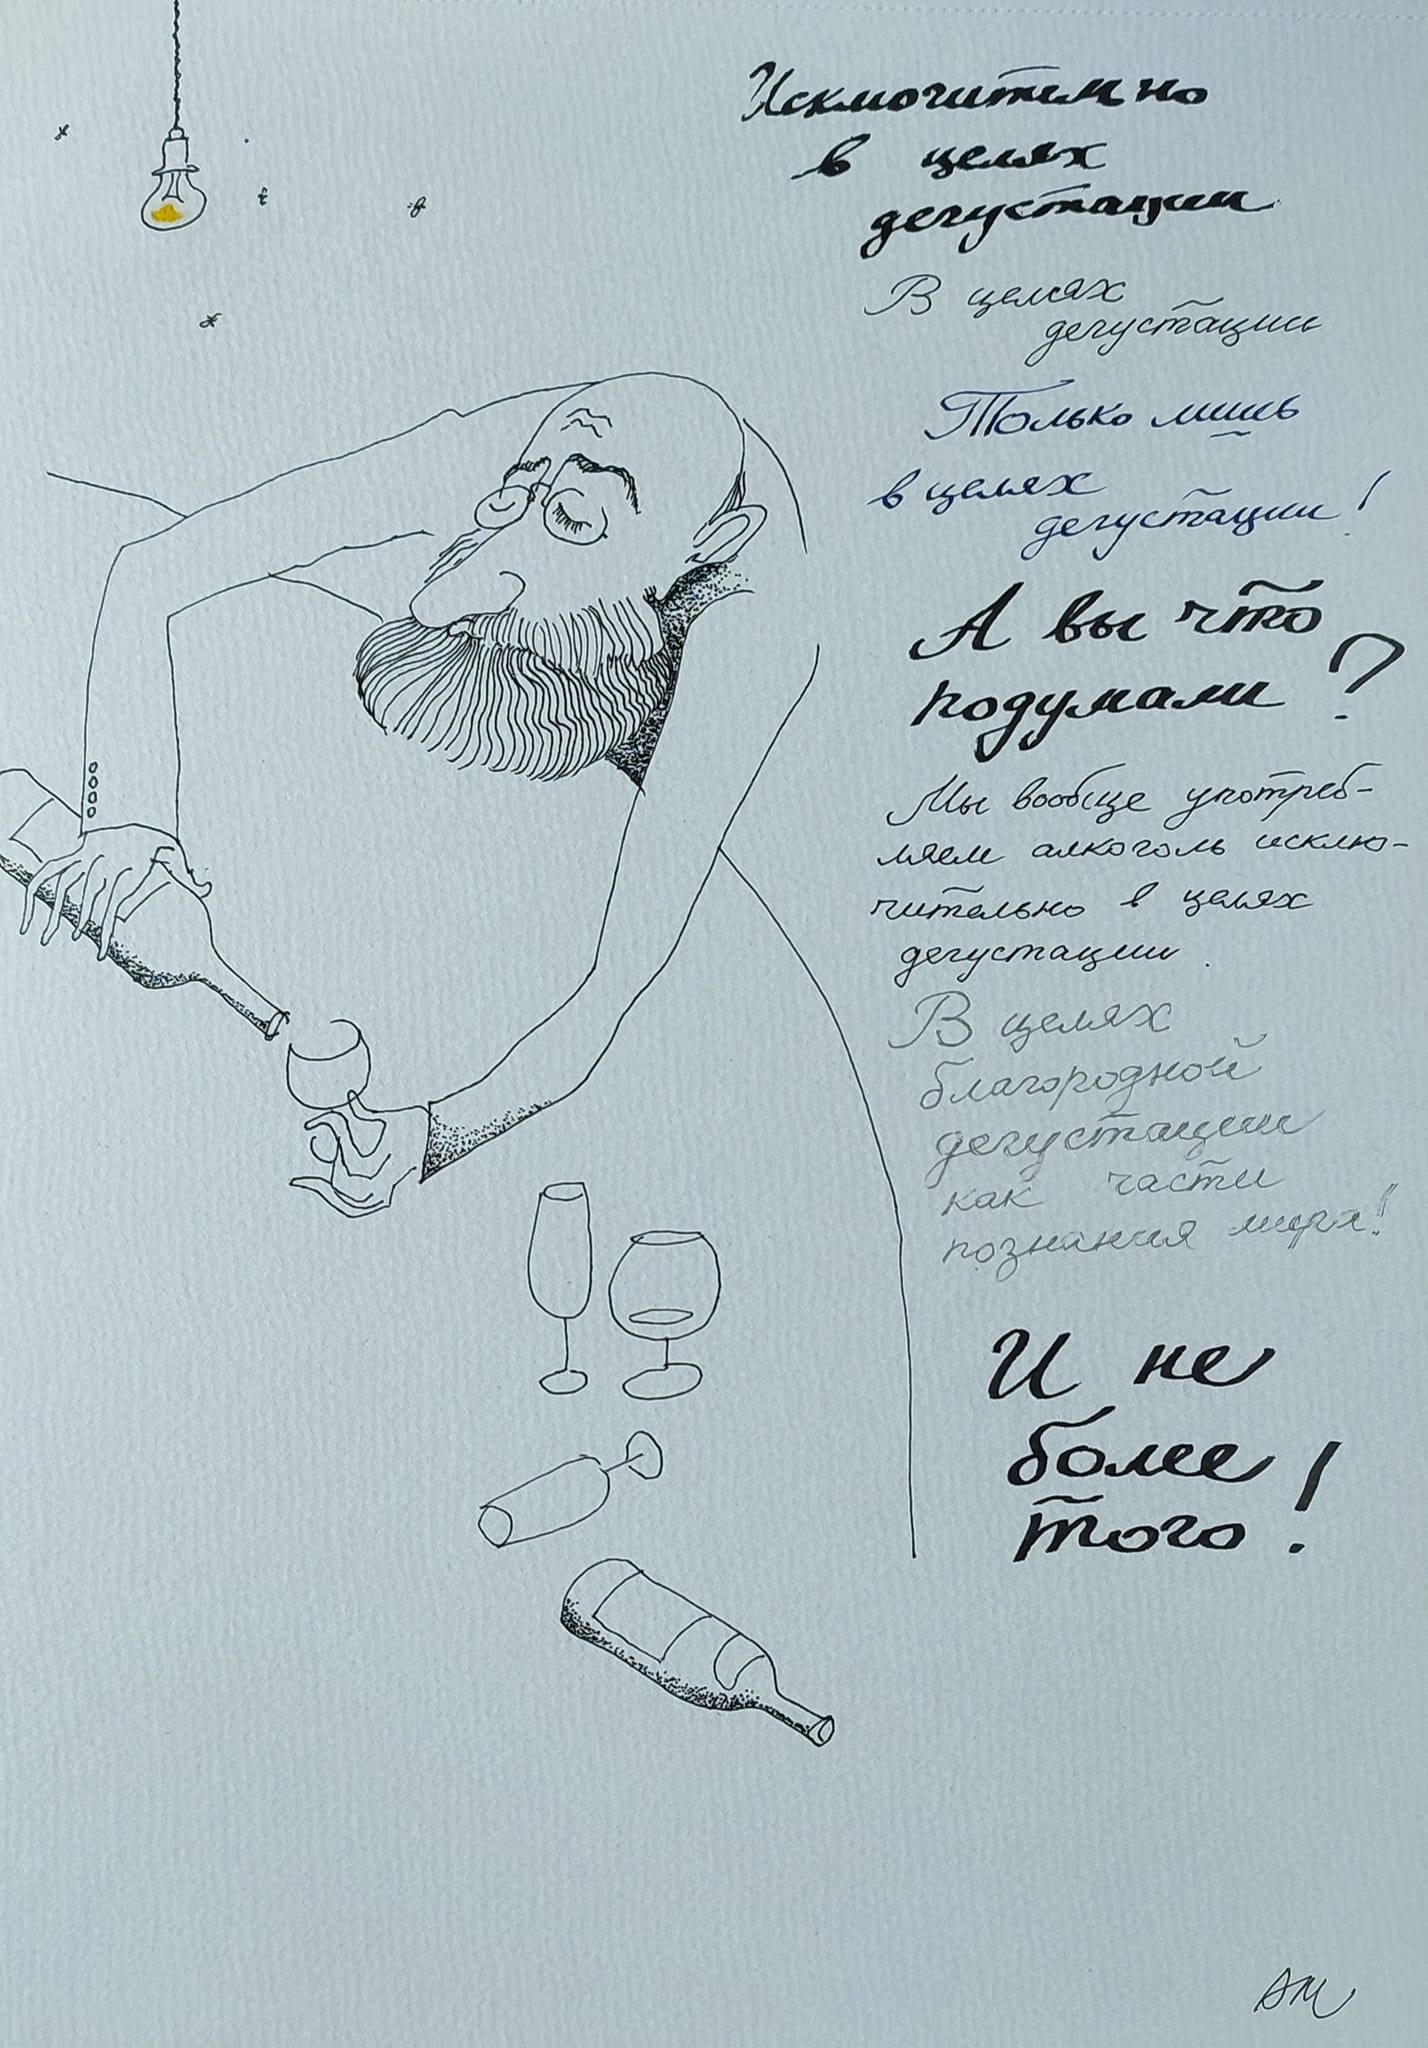 Исключительно
в целях
дегустации
В целях
дегустации
Только лишь
в целях
дегустации!
А вы что
подумали?
Мы вообще употреб-
ляем алкоголь исклю-
чительно в целях
дегустации.
В целях
благородной
дегустации
как части
познания мира!
И не
более
того!
АМ